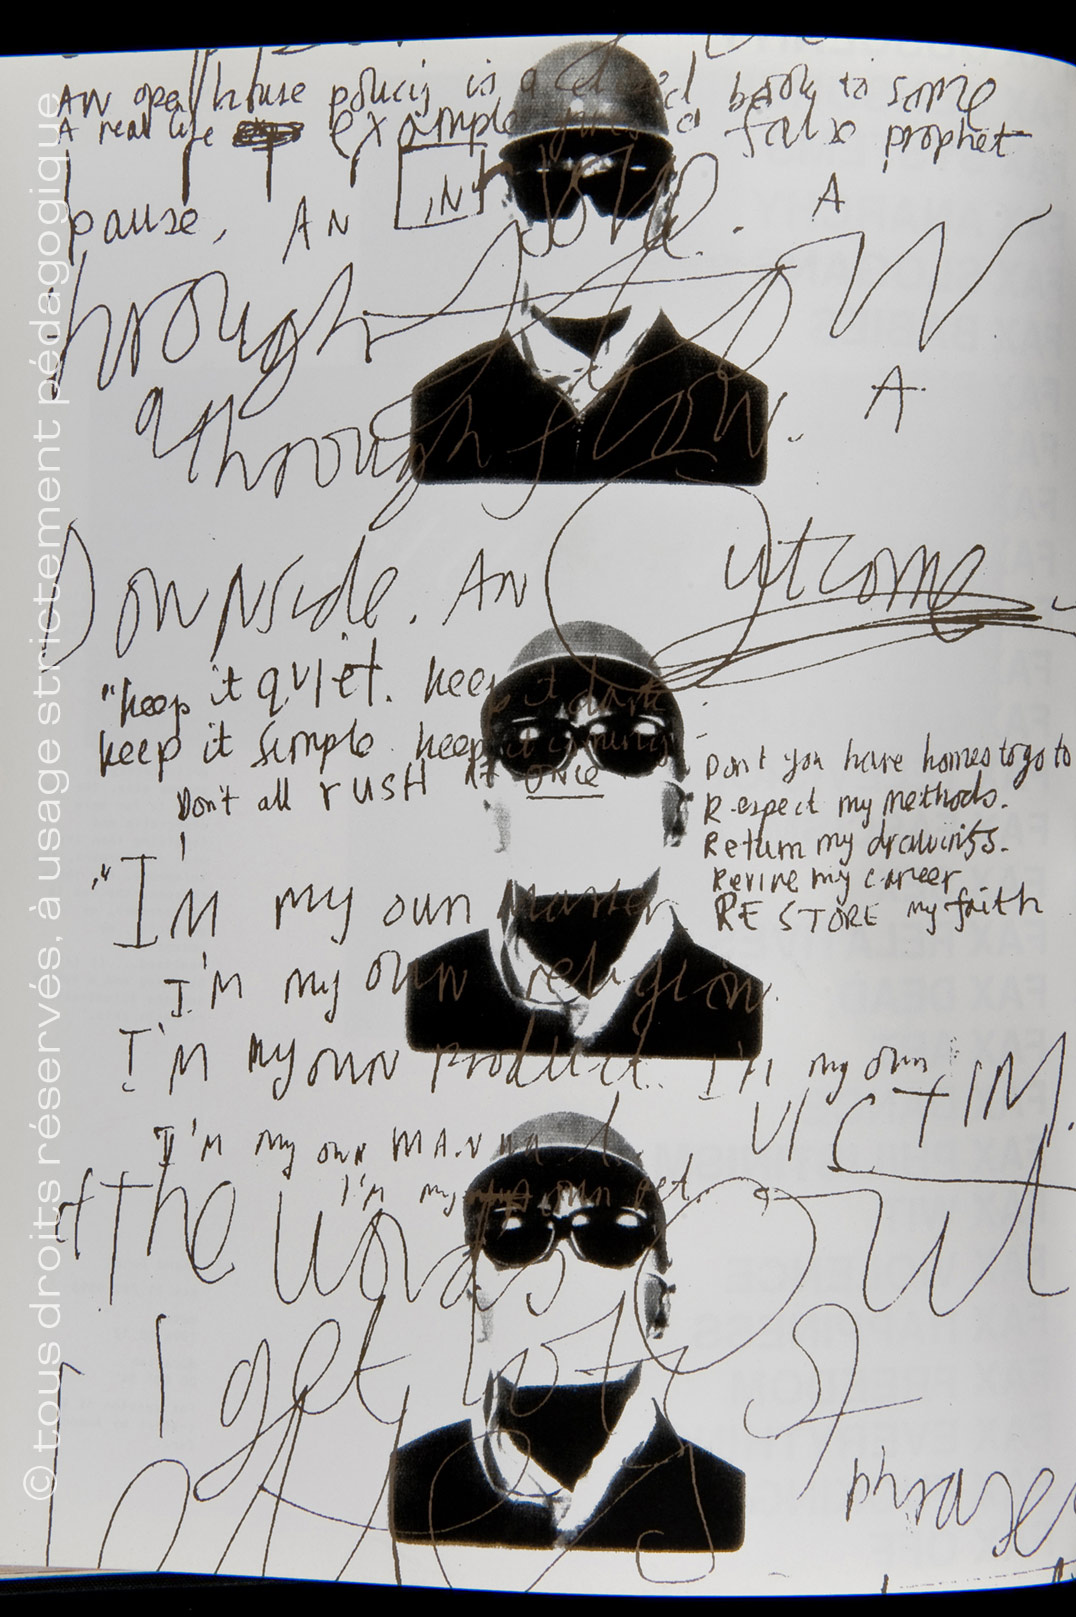 AN open house policy is a closed book to some
A real life example gives a false prophet
pause, AN IN A
through flow
a through flow. A
Downside. AN Outcome
"keep it quiet. keep it dark
keep it simple. keep it coming
Don't all rUSH AT ONCE
Don't you have homes to go to
Respect my methods.
Return my drawings.
Revive my career
RESTORE my faith
"I'M my own Master
I'm my own religion.
I'M my own product. I'M my own VICTIM.
I'm my own
I'm my own pet.
The words Out
I get lots of
phrases
© tous droits réservés, à usage strictement pédagogique